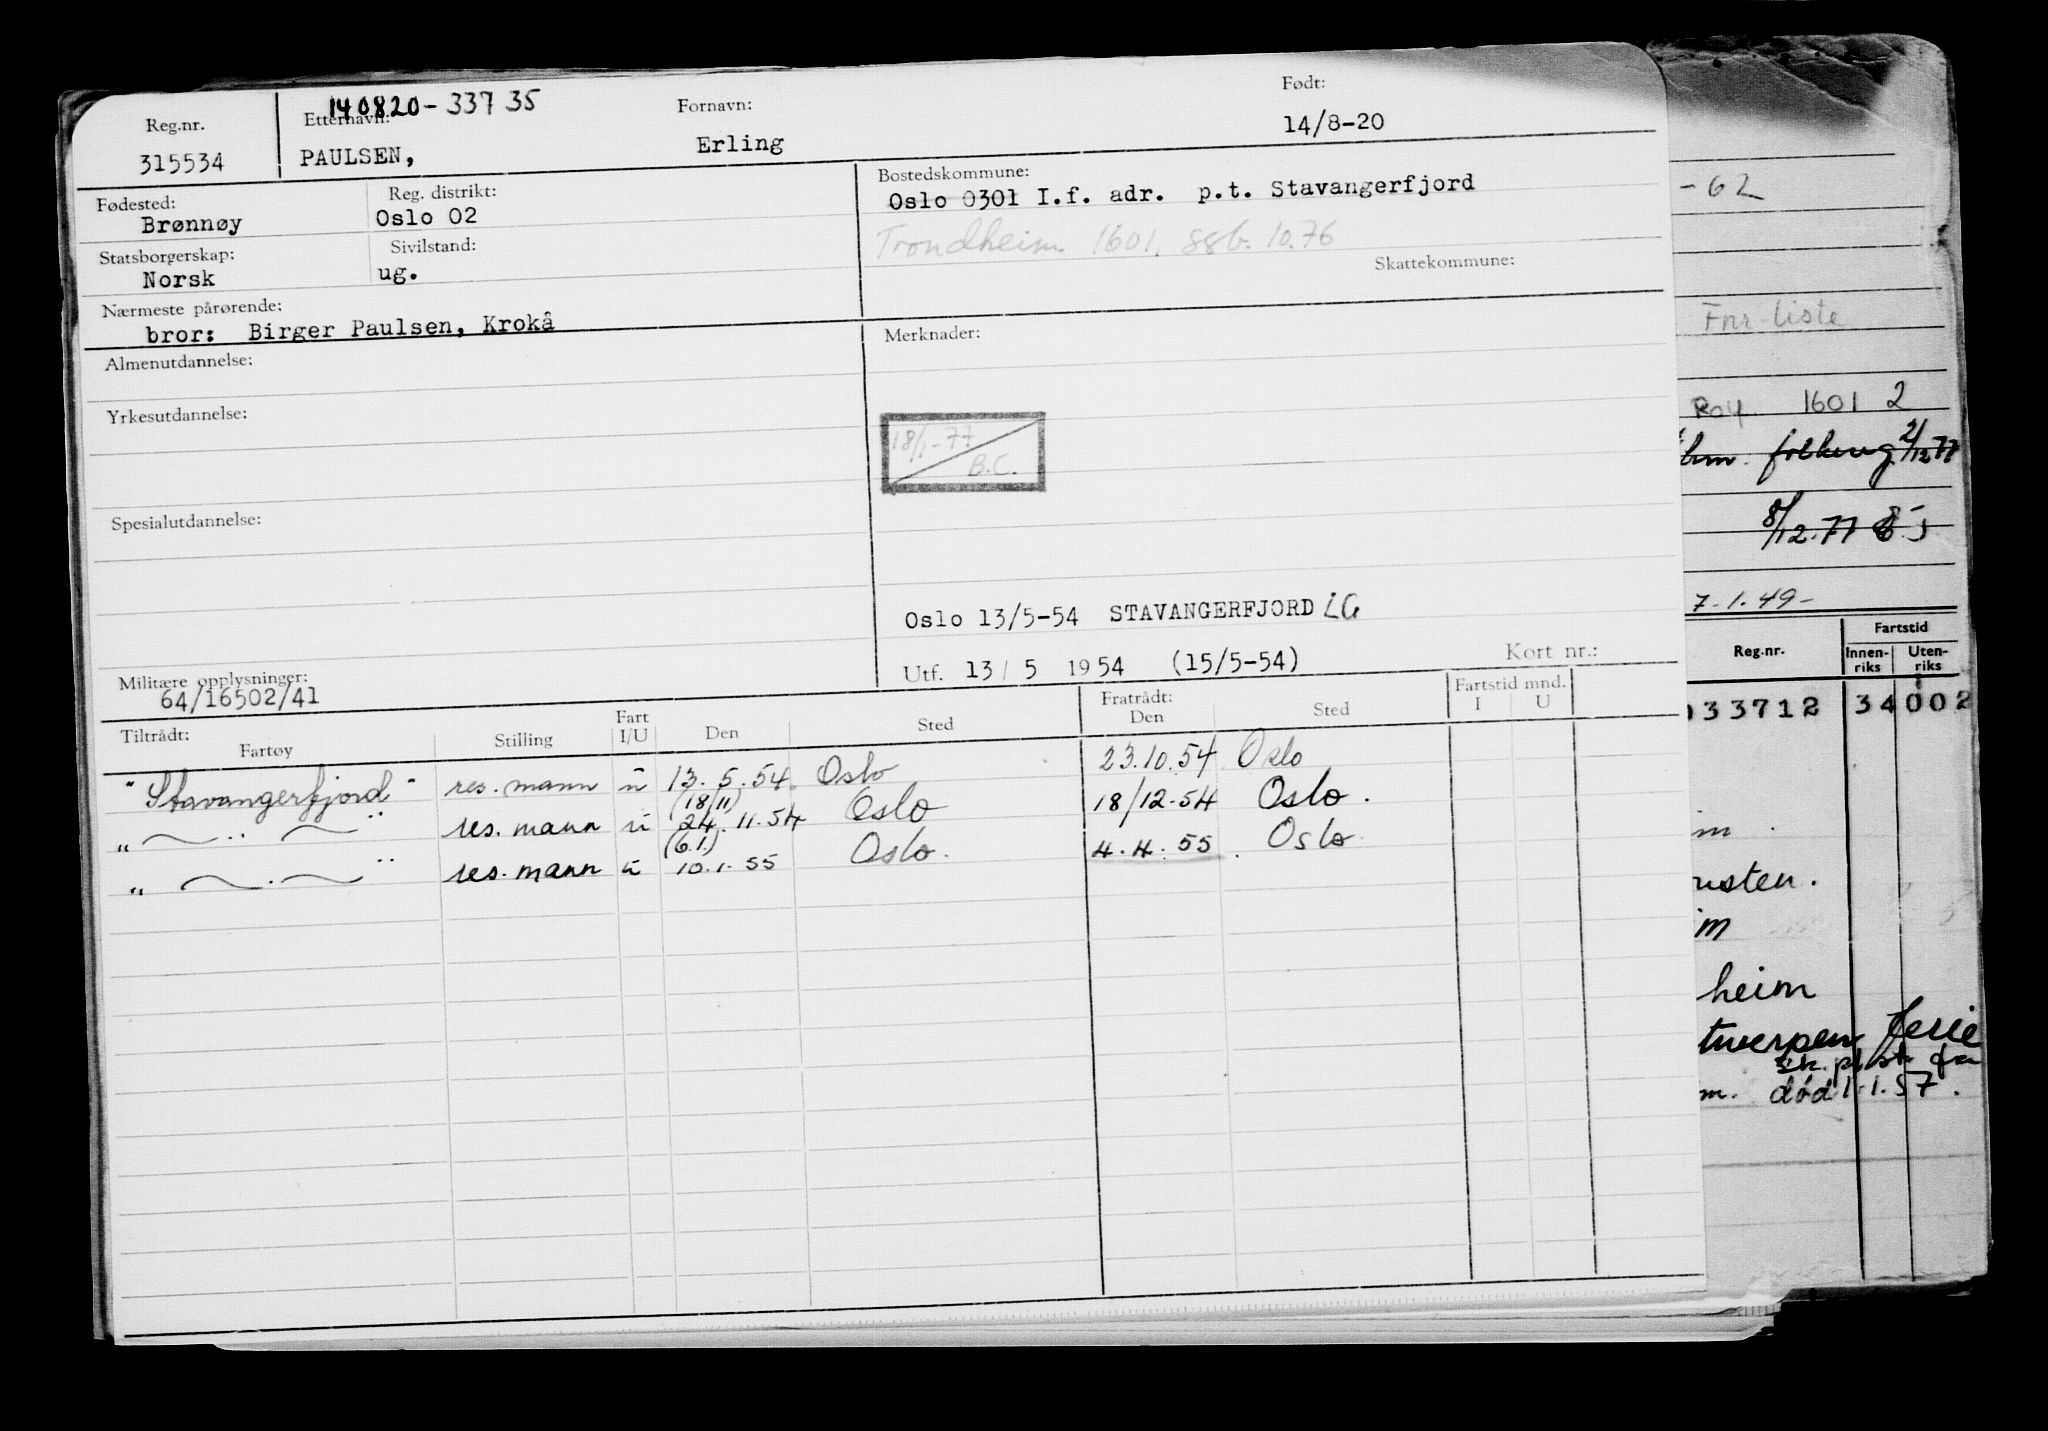 140820-33735
Reg.nr. Etternavn: Fornavn: Født:
315534 PAULSEN, Erling 14/8-20
Fødested: Reg. distrikt: Bostedskommune:
Brønnøy Oslo 02 Oslo 0301 I.f. adr. p.t. Stavangerfjord
Statsborgerskap: Sivilstand: Trondheim 1601, ssb. 10.76
Norsk ug. Skattekommune:
Nærmeste pårørende:
bror: Birger Paulsen, Krokå
Almenutdannelse: Merknader:
Yrkesutdannelse:
18/1-77
B.C.
Spesialutdannelse:
Oslo 13/5-54 STAVANGERFJORD LG
Utf. 13/ 5 1954 (15/5-54) Kort nr.:
Militære opplysninger:
64/16502/41
Tiltrådt: Fratrådt: Fartstid mnd.
Fartøy Stilling Fart I/U Den Sted Den Sted I U
"Stavangerfjord" res. mann u 13.5.54 Oslo 23.10.54 Oslo
(18/11)
" — " — " res. mann u 24.11.54 Oslo 18/12.54 Oslo.
(6.1.)
" — . — " res. mann u 10.1.55 Oslo. 4.4.55. Oslo.
-62
Fnr-liste
1601 2
2/12 77
8/12.77
7.1.49-
Reg.nr. Fartstid
Innen-riks Uten-riks
033712 34 002
im
im
heim
twerpen ferie
m. død 1.1.57.